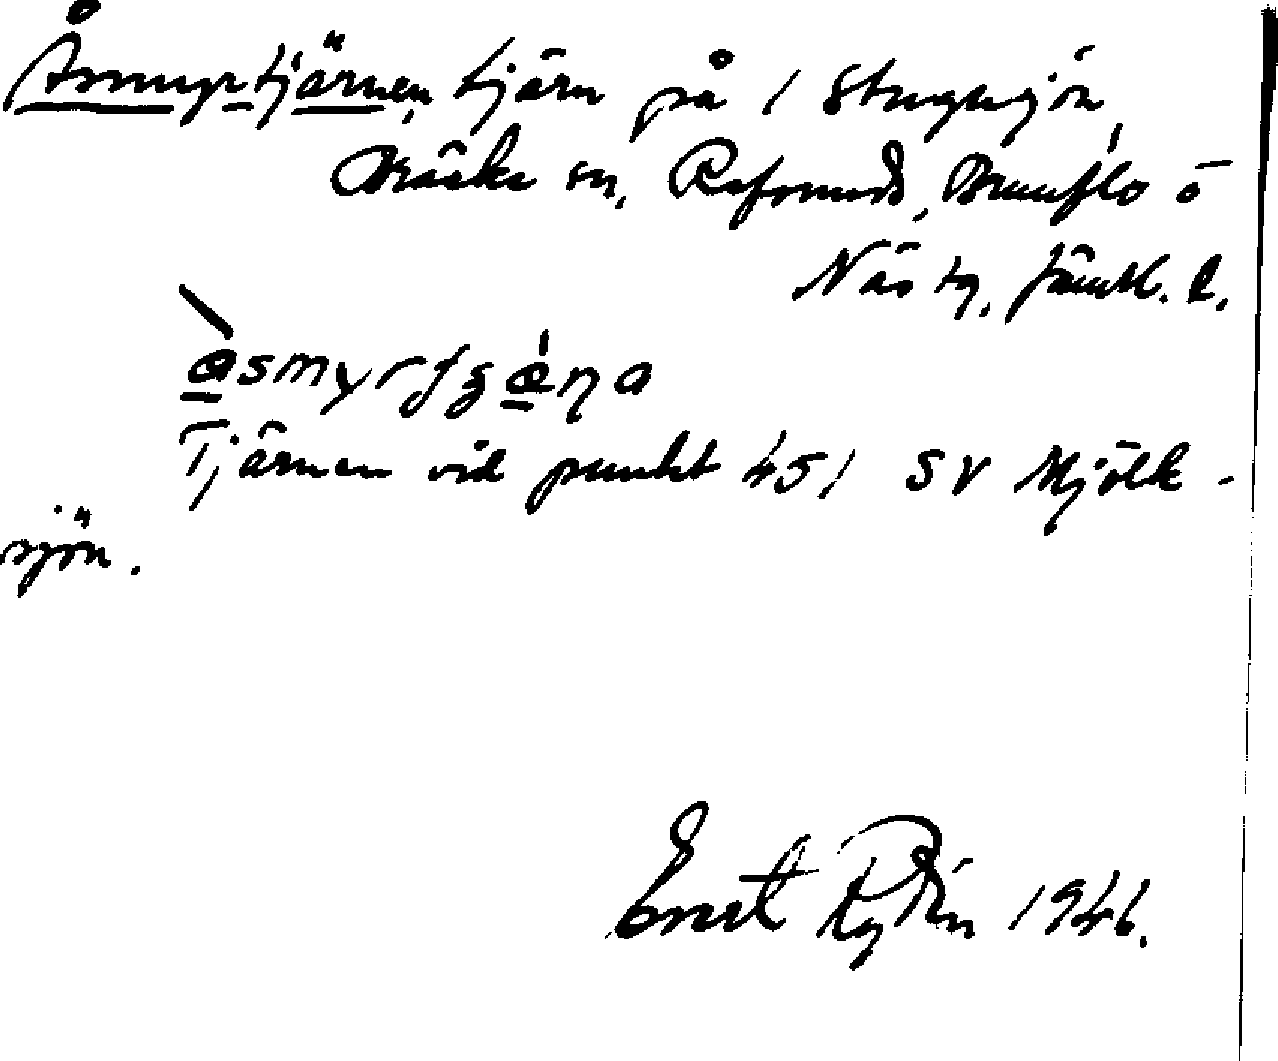 Åsmyrtjärnen, tjärn på 1 Stugusjön,
Bräcke sn, Refsunds, Brunflo o
Näs tg, Jämtl. l.
åsmyrʃʒæ̀ɳa
Tjärnen vid punkt 451 SV Mjölk-
sjön.
Ernst Rydén 1946.